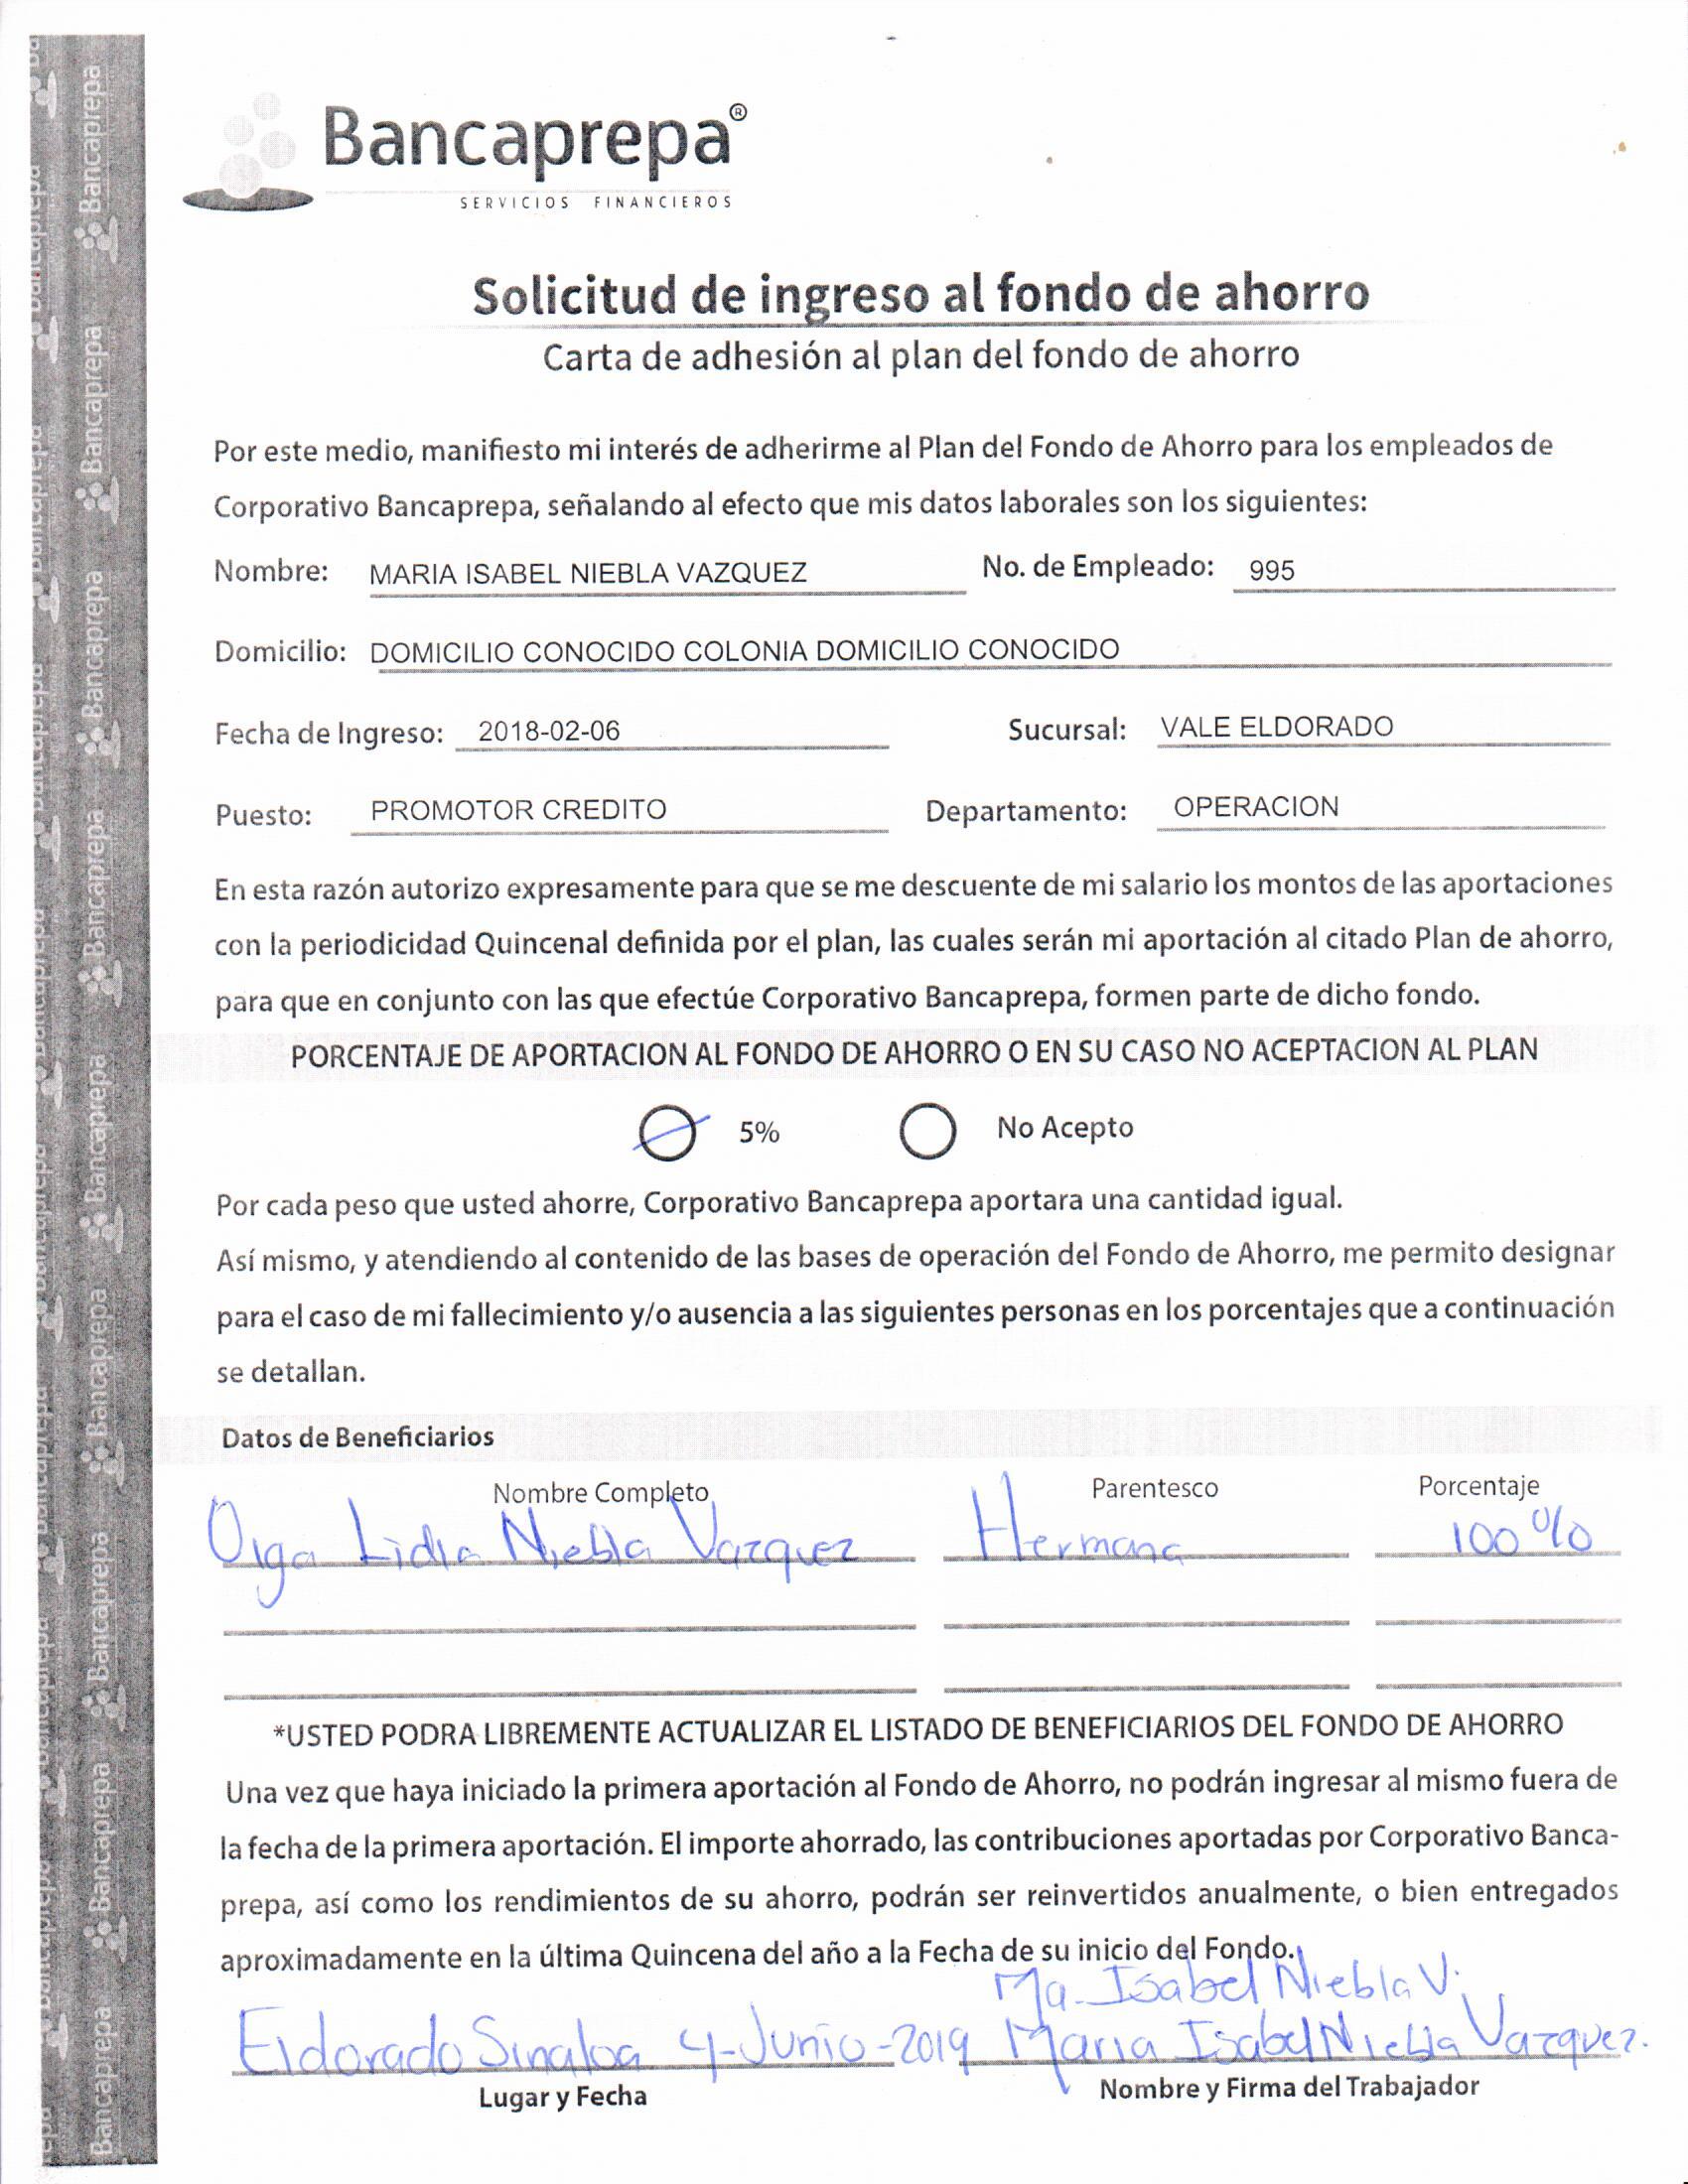 Bancaprepa®
SERVICIOS FINANCIEROS
Solicitud de ingreso al fondo de ahorro
Carta de adhesión al plan del fondo de ahorro
Por este medio, manifiesto mi interés de adherirme al Plan del Fondo de Ahorro para los empleados de
Corporativo Bancaprepa, señalando al efecto que mis datos laborales son los siguientes:
Nombre: MARIA ISABEL NIEBLA VAZQUEZ No. de Empleado: 995
Domicilio: DOMICILIO CONOCIDO COLONIA DOMICILIO CONOCIDO
Fecha de Ingreso: 2018-02-06 Sucursal: VALE ELDORADO
Puesto: PROMOTOR CREDITO Departamento: OPERACION
En esta razón autorizo expresamente para que se me descuente de mi salario los montos de las aportaciones
con la periodicidad Quincenal definida por el plan, las cuales serán mi aportación al citado Plan de ahorro,
para que en conjunto con las que efectúe Corporativo Bancaprepa, formen parte de dicho fondo.
PORCENTAJE DE APORTACION AL FONDO DE AHORRO O EN SU CASO NO ACEPTACION AL PLAN
5% No Acepto
Por cada peso que usted ahorre, Corporativo Bancaprepa aportara una cantidad igual.
Así mismo, y atendiendo al contenido de las bases de operación del Fondo de Ahorro, me permito designar
para el caso de mi fallecimiento y/o ausencia a las siguientes personas en los porcentajes que a continuación
se detallan.
Datos de Beneficiarios
Nombre Completo Parentesco Porcentaje
Olga Lidia Niebla Vazquez Hermana 100%
*USTED PODRA LIBREMENTE ACTUALIZAR EL LISTADO DE BENEFICIARIOS DEL FONDO DE AHORRO
Una vez que haya iniciado la primera aportación al Fondo de Ahorro, no podrán ingresar al mismo fuera de
la fecha de la primera aportación. El importe ahorrado, las contribuciones aportadas por Corporativo Banca-
prepa, así como los rendimientos de su ahorro, podrán ser reinvertidos anualmente, o bien entregados
aproximadamente en la última Quincena del año a la Fecha de su inicio del Fondo.
Ma. Isabel Niebla V.
Eldorado Sinaloa 4-Junio-2019 Maria Isabel Niebla Vazquez.
Lugar y Fecha Nombre y Firma del Trabajador